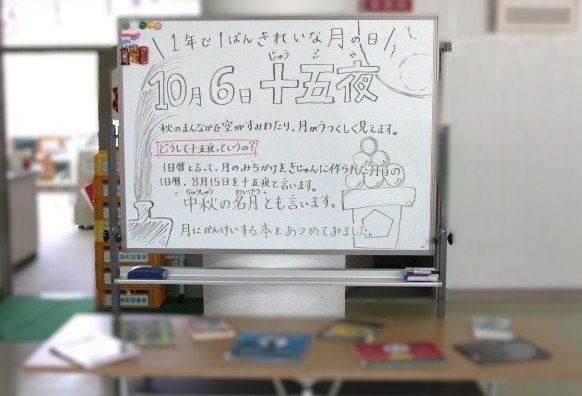 1年で1ばんきれいな月の日
じゅう ご や
10月6日十五夜
秋のまんなかで空がすみわたり、月がうつくしく見えます。
どうして十五夜っていうの?
旧暦と言って、月のみちかけをきじゅんに作られた月日の
旧暦、8月15日を十五夜と言います。
ちゅうしゅう めいげつ
中秋の名月とも言います。
月にかんけいする本をあつめてみました。